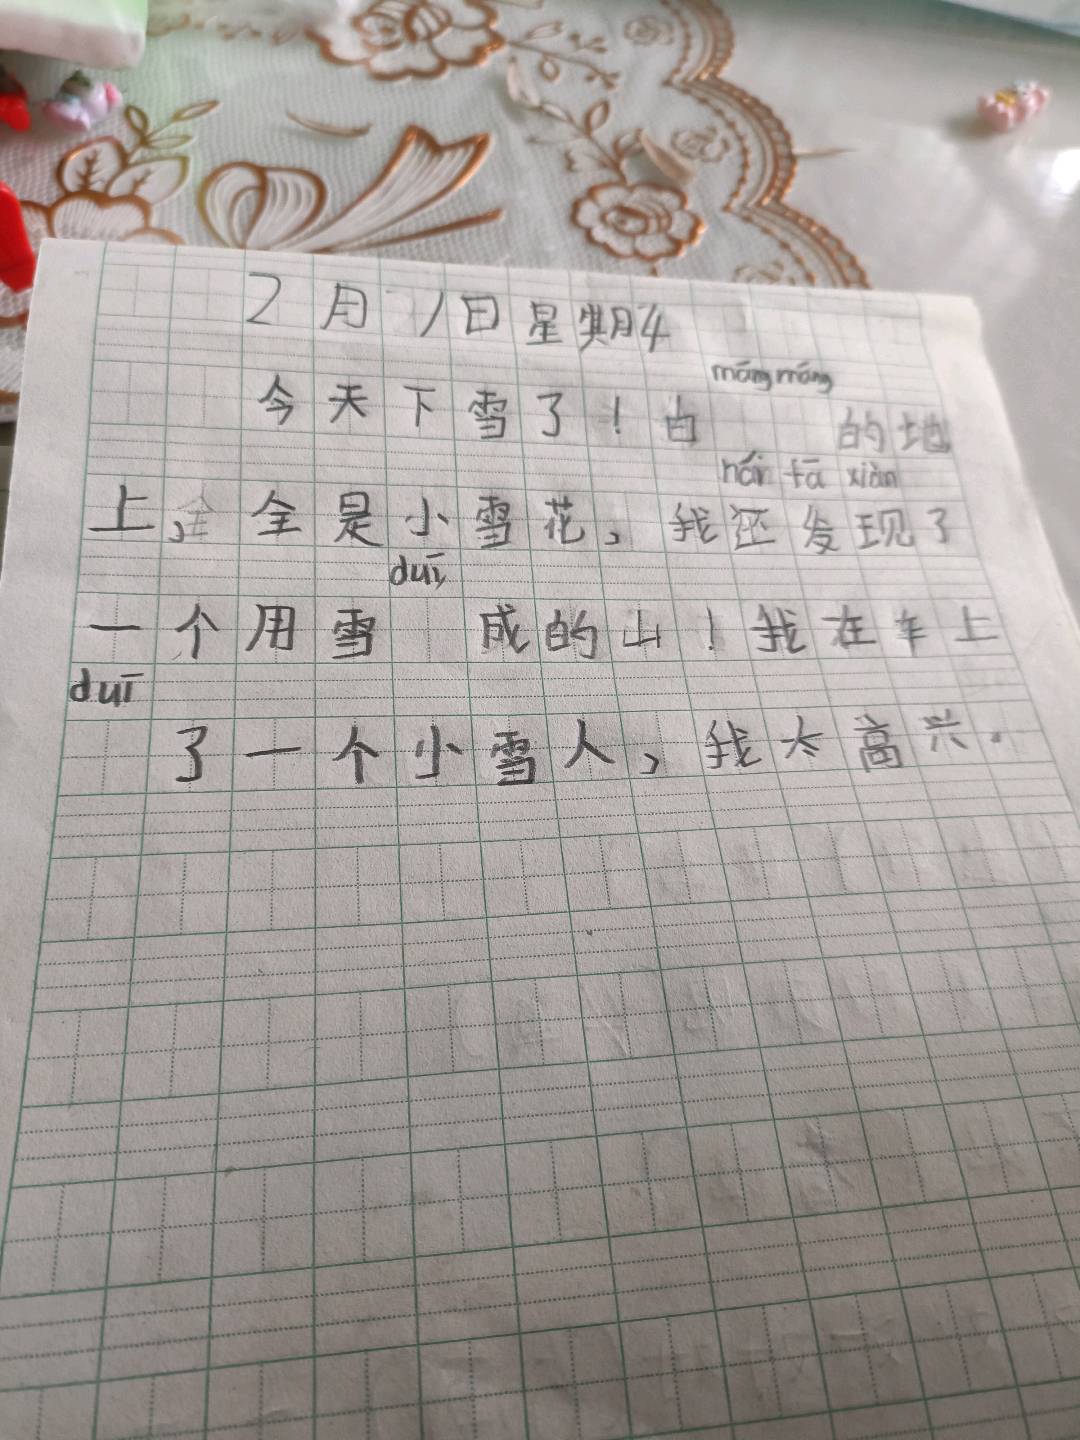 2月1日星期4
máng máng
今天下雪了！白的地
hái fā xiàn
上，全是小雪花，我还发现了
duī
一个用雪成的山！我在车上
duī
了一个小雪人，我太高兴.